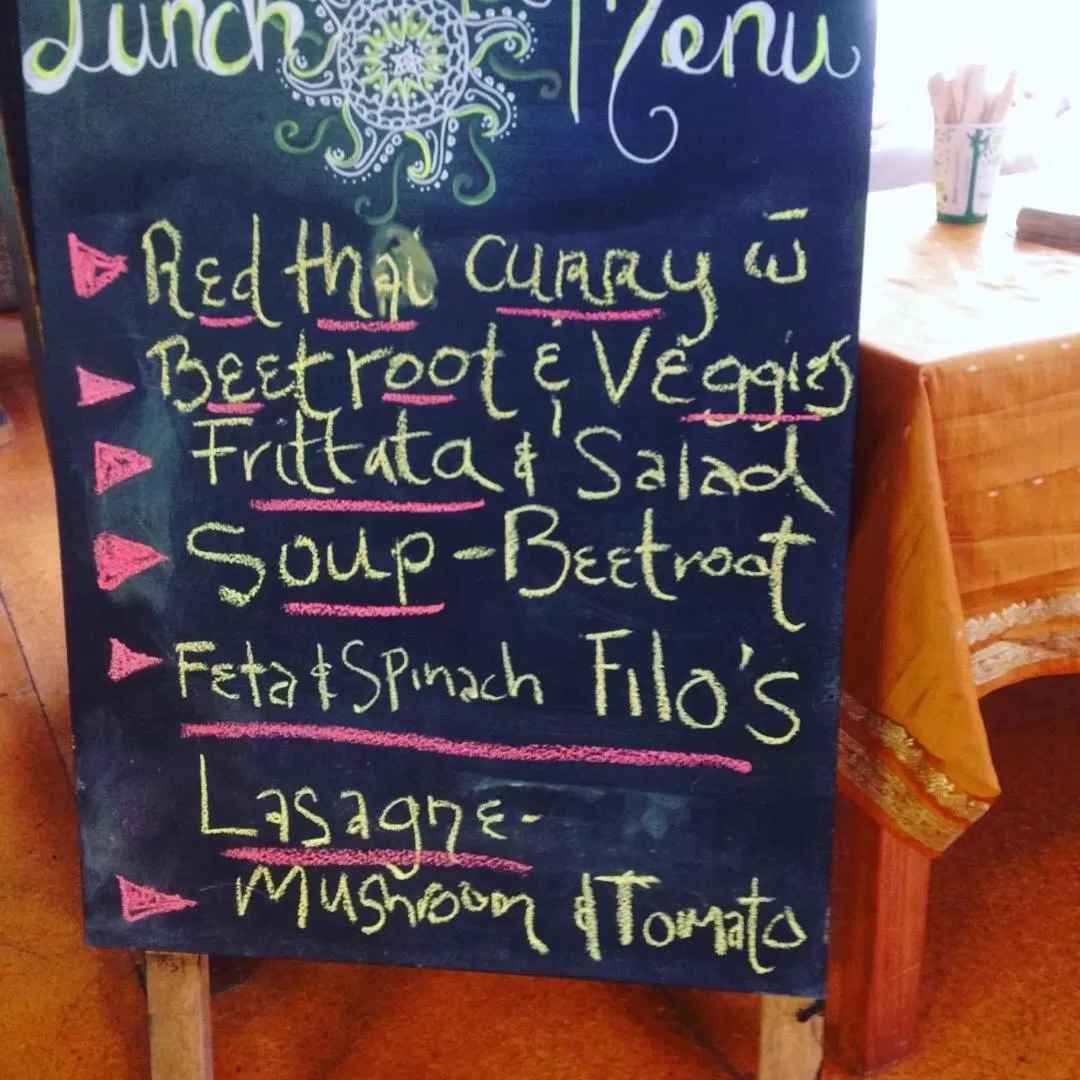 Lunch Menu
Red thai curry c̄
Beetroot & Veggies
Frittata & Salad
Soup - Beetroot
Feta & Spinach Filo's
Lasagne -
Mushroom & Tomato